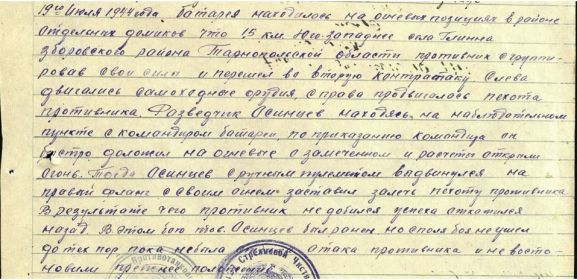 19го Июля 1944 года батарея находилось на огневых позициях в районе
отдельных домиков что 15 км. юго-западнее села Глинна
Зборовского района Тарнопольской области противник сгруппи-
ровав свои силы и перешел во вторую контратаку. Слева
двигались самоходные орудия, справа продвигалась пехота
противника. Разведчик Осинцев находясь на наблюдательном
пункте с командиром батареи, по приказанию командира он
быстро доложил на огневые о замеченном и расчеты открыли
огонь. Тогда Осинцев с ручным пулеметом выдвинулся на
правый фланг и своим огнем заставил залечь пехоту противника
В результате чего противник не добился успеха откатился
назад. В этом бою тов. Осинцев был ранен, но с поля боя не ушел
до тех пор пока не была атака противника и не восто-
новили прежнее положение
Стрелковой Части